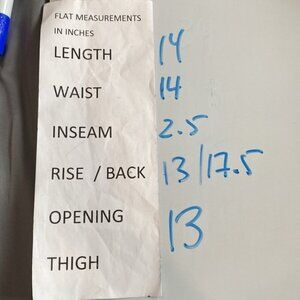 FLAT MEASUREMENTS
IN INCHES
LENGTH 14
WAIST 14
INSEAM 2.5
RISE / BACK 13/17.5
OPENING 13
THIGH